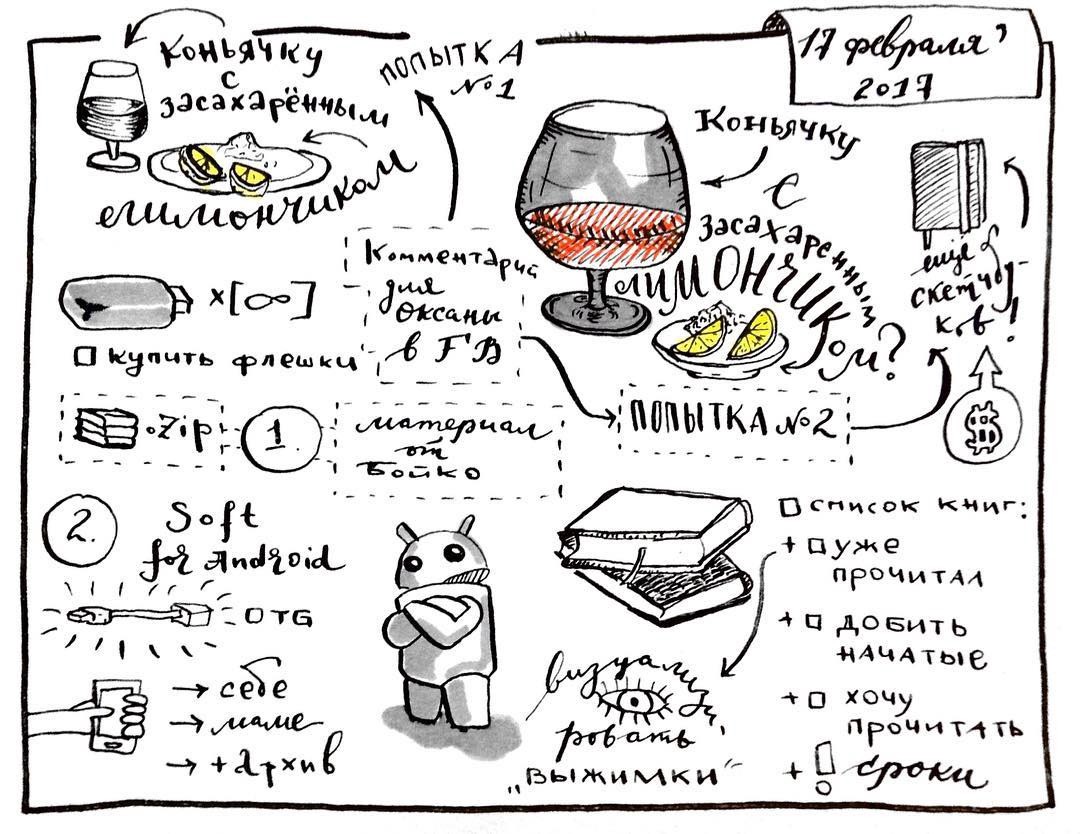 17 февраля
2017
коньячку
с
засахарённым
лимончиком
ПОПЫТКА
№1
Коньячку
с
засахаренным
лимончиком?
ещё
скетчбу-
ков!
Комментарий
для
Оксаны
в FB
×[∞]
купить флешки
ПОПЫТКА №2
$
.zip
1.
материал
от
Бойко
2.
Soft
for Android
OTG
→ себе
→ маме
→ +архив
визуализи
ровать
„ВЫЖИМКИ“
список книг:
+ уже
прочитал
+ добить
начатые
+ хочу
прочитать
+ ! сроки